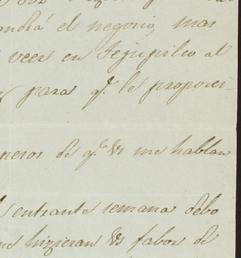 el negocio, mas
veer en Tejupilco al
para q.e le proporci-
neros de q.e V. me hablan
entrante semana debo
me hizieran V. favor de